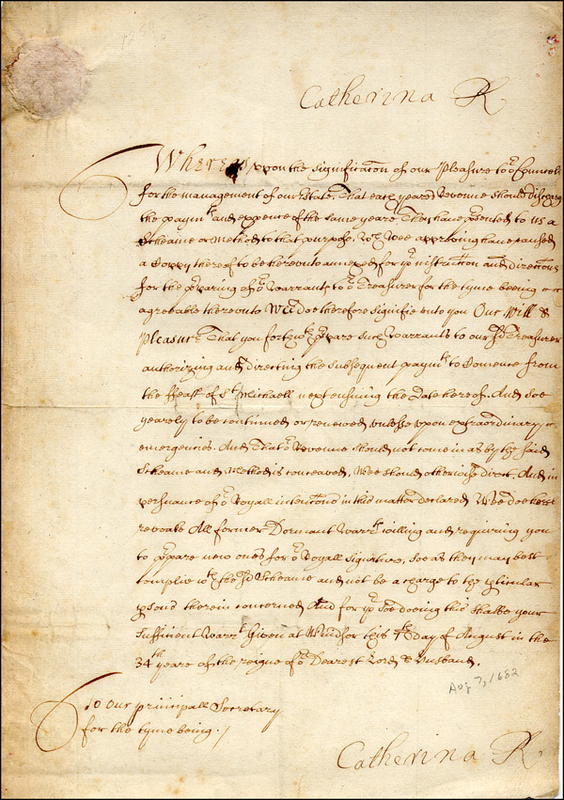 Catherina R
Whereas upon the Signification of our Pleasure to oʳ Councell
for the management of our Estate, That each yeares Revenue should discharge
the paymᵗˢ and expence of the same yeare They have psented to us a
Scheame or Method to that purpose, Wᶜʰ Wee approving have caused
a Coppy thereof to be hereunto annexed for yoʳ instruction and directions
for the pparing of oʳ Warrants to oʳ Treasurer for the tyme being
agreable thereunto Wee doe therefore signifie unto you Our Will &
Pleasure That you forthwᵗʰ ppare such Warrants to our sᵈ Treasurer
authorizing and directing the subsequent paymᵗˢ to Comence from
the ffeast of Sᵗ Michaell next ensuing the Date hereof. And soe
yearely to be continued or renewed, unlesse upon extraordinary
emergencies. And That oʳ Revenue should not come in as by the said
Scheame and Method is conceaved, Wee should otherwise direct. And in
psuance of oʳ Royall intencons in this matter declared Wee doe hereby
revoake All former Dormant Warrᵗˢ willing and requiring you
to ppare new ones for oʳ Royall Signature, soe as they may best
complie wᵗʰ the sᵈ Scheame and not be a charge to the pticular
psons therein concerned And for yoʳ soe doeing this shalbe your
Sufficient Warrᵗ Given at Windsor this 7ᵗʰ day of August in the
34ᵗʰ yeare of the reigne of oʳ Dearest Lord & Husband.
Aug 7, 1682
To Our principall Secretary
for the tyme being./
Catherina R